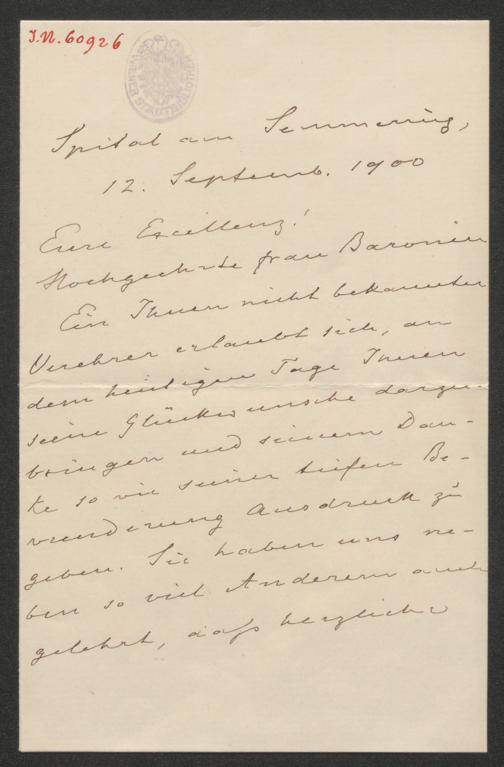 J.N. 60926
WIENER STADTBIBLIOTHEK
Spital am Semmering,
12. Septemb. 1900
Eure Excellenz!
Hochgeehrte Frau Baronin
Ein Ihnen nicht bekannter
Verehrer erlaubt sich, an
dem heutigen Tage Ihnen
seine Glückwünsche darzu-
bringen und seinem Dan-
ke so wie seiner tiefen Be-
wunderung Ausdruck zu
geben. Sie haben uns ne-
ben so viel Anderem auch
gelehrt, daß herzliche